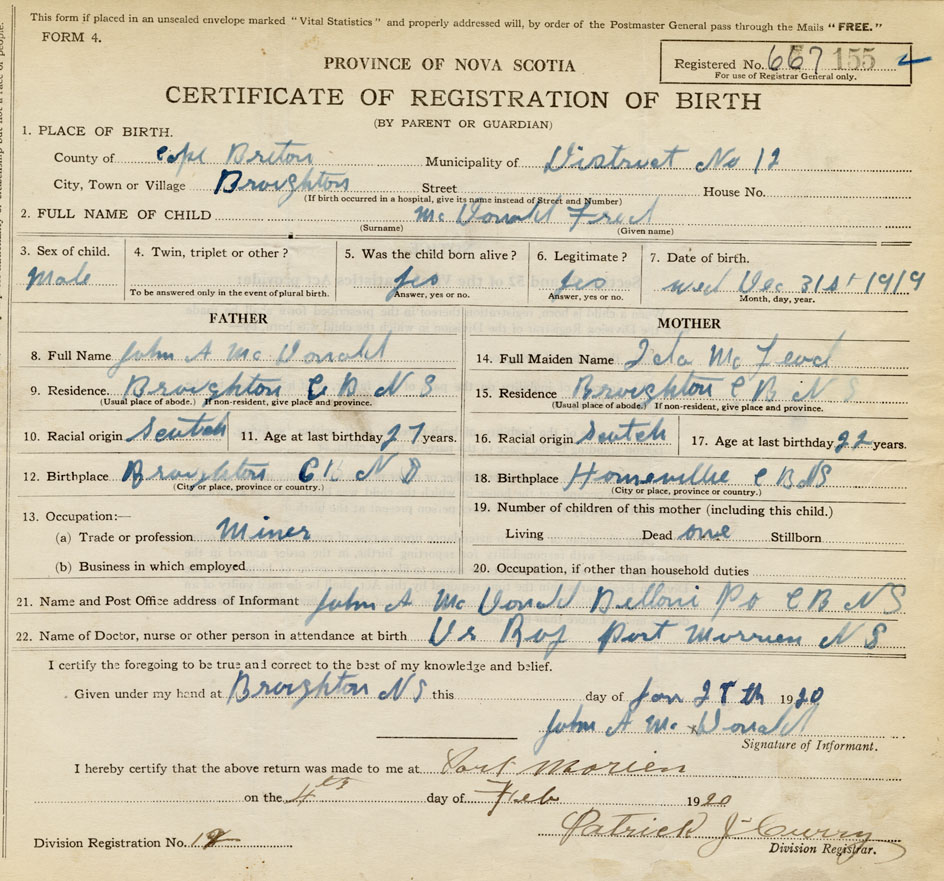 This form if placed in an unsealed envelope marked "Vital Statistics" and properly addressed will, by order of the Postmaster General pass through the Mails "FREE."
FORM 4.
Registered No. 667 155
For use of Registrar General only.
PROVINCE OF NOVA SCOTIA
CERTIFICATE OF REGISTRATION OF BIRTH
(BY PARENT OR GUARDIAN)
1. PLACE OF BIRTH.
County of Cape Breton Municipality of District No 12
City, Town or Village Broughton Street House No.
(If birth occurred in a hospital, give its name instead of Street and Number)
2. FULL NAME OF CHILD Mc Donald Fred
(Surname) (Given name)
3. Sex of child. 4. Twin, triplet or other? 5. Was the child born alive? 6. Legitimate? 7. Date of birth.
Male yes yes wed Dec 31st 1919
To be answered only in the event of plural birth. Answer, yes or no. Answer, yes or no. Month, day, year.
FATHER
8. Full Name John A Mc Donald
9. Residence. Broughton C B N S
(Usual place of abode.) If non-resident, give place and province.
10. Racial origin Scotch 11. Age at last birthday 27 years.
12. Birthplace Broughton C B N S
(City or place, province or country.)
13. Occupation:—
(a) Trade or profession Miner
(b) Business in which employed
MOTHER
14. Full Maiden Name Ida Mc Leod
15. Residence Broughton C B N S
(Usual place of abode.) If non-resident, give place and province.
16. Racial origin Scotch 17. Age at last birthday 22 years.
18. Birthplace Homeville C B N S
(City or place, province or country.)
19. Number of children of this mother (including this child.)
Living Dead one Stillborn
20. Occupation, if other than household duties
21. Name and Post Office address of Informant John A Mc Donald Belloni Po C B N S
22. Name of Doctor, nurse or other person in attendance at birth Dr Roy Port Morrien N S
I certify the foregoing to be true and correct to the best of my knowledge and belief.
Given under my hand at Broughton N S this day of Jan 28 th 1920
John A Mc Donald
Signature of Informant.
I hereby certify that the above return was made to me at Port Morien
on the 4th day of Feb 1920
Patrick J Curry
Division Registrar.
Division Registration No. 12